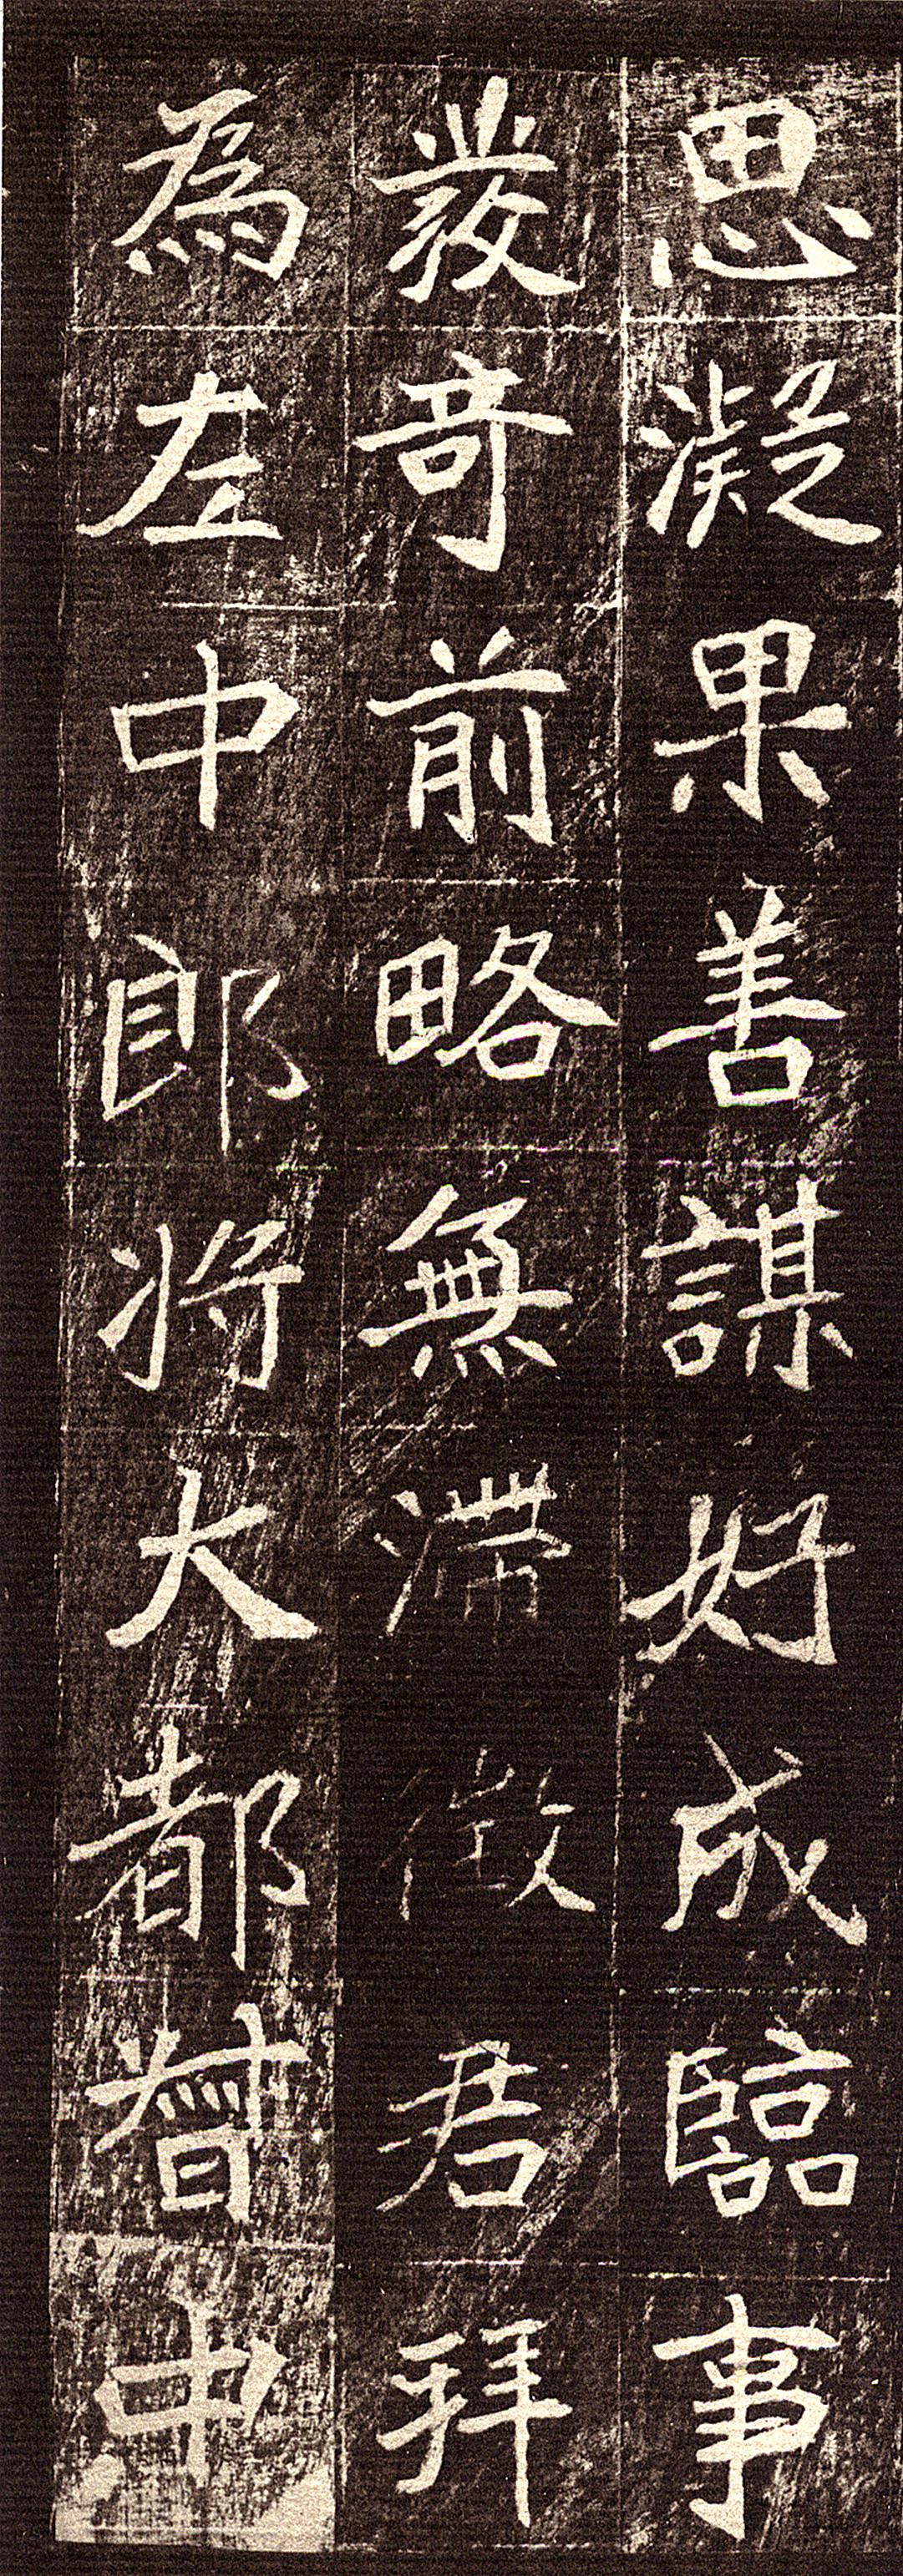 思凝果善謀好成臨事
發奇前略無滯徵君拜
為左中郎將大都督中